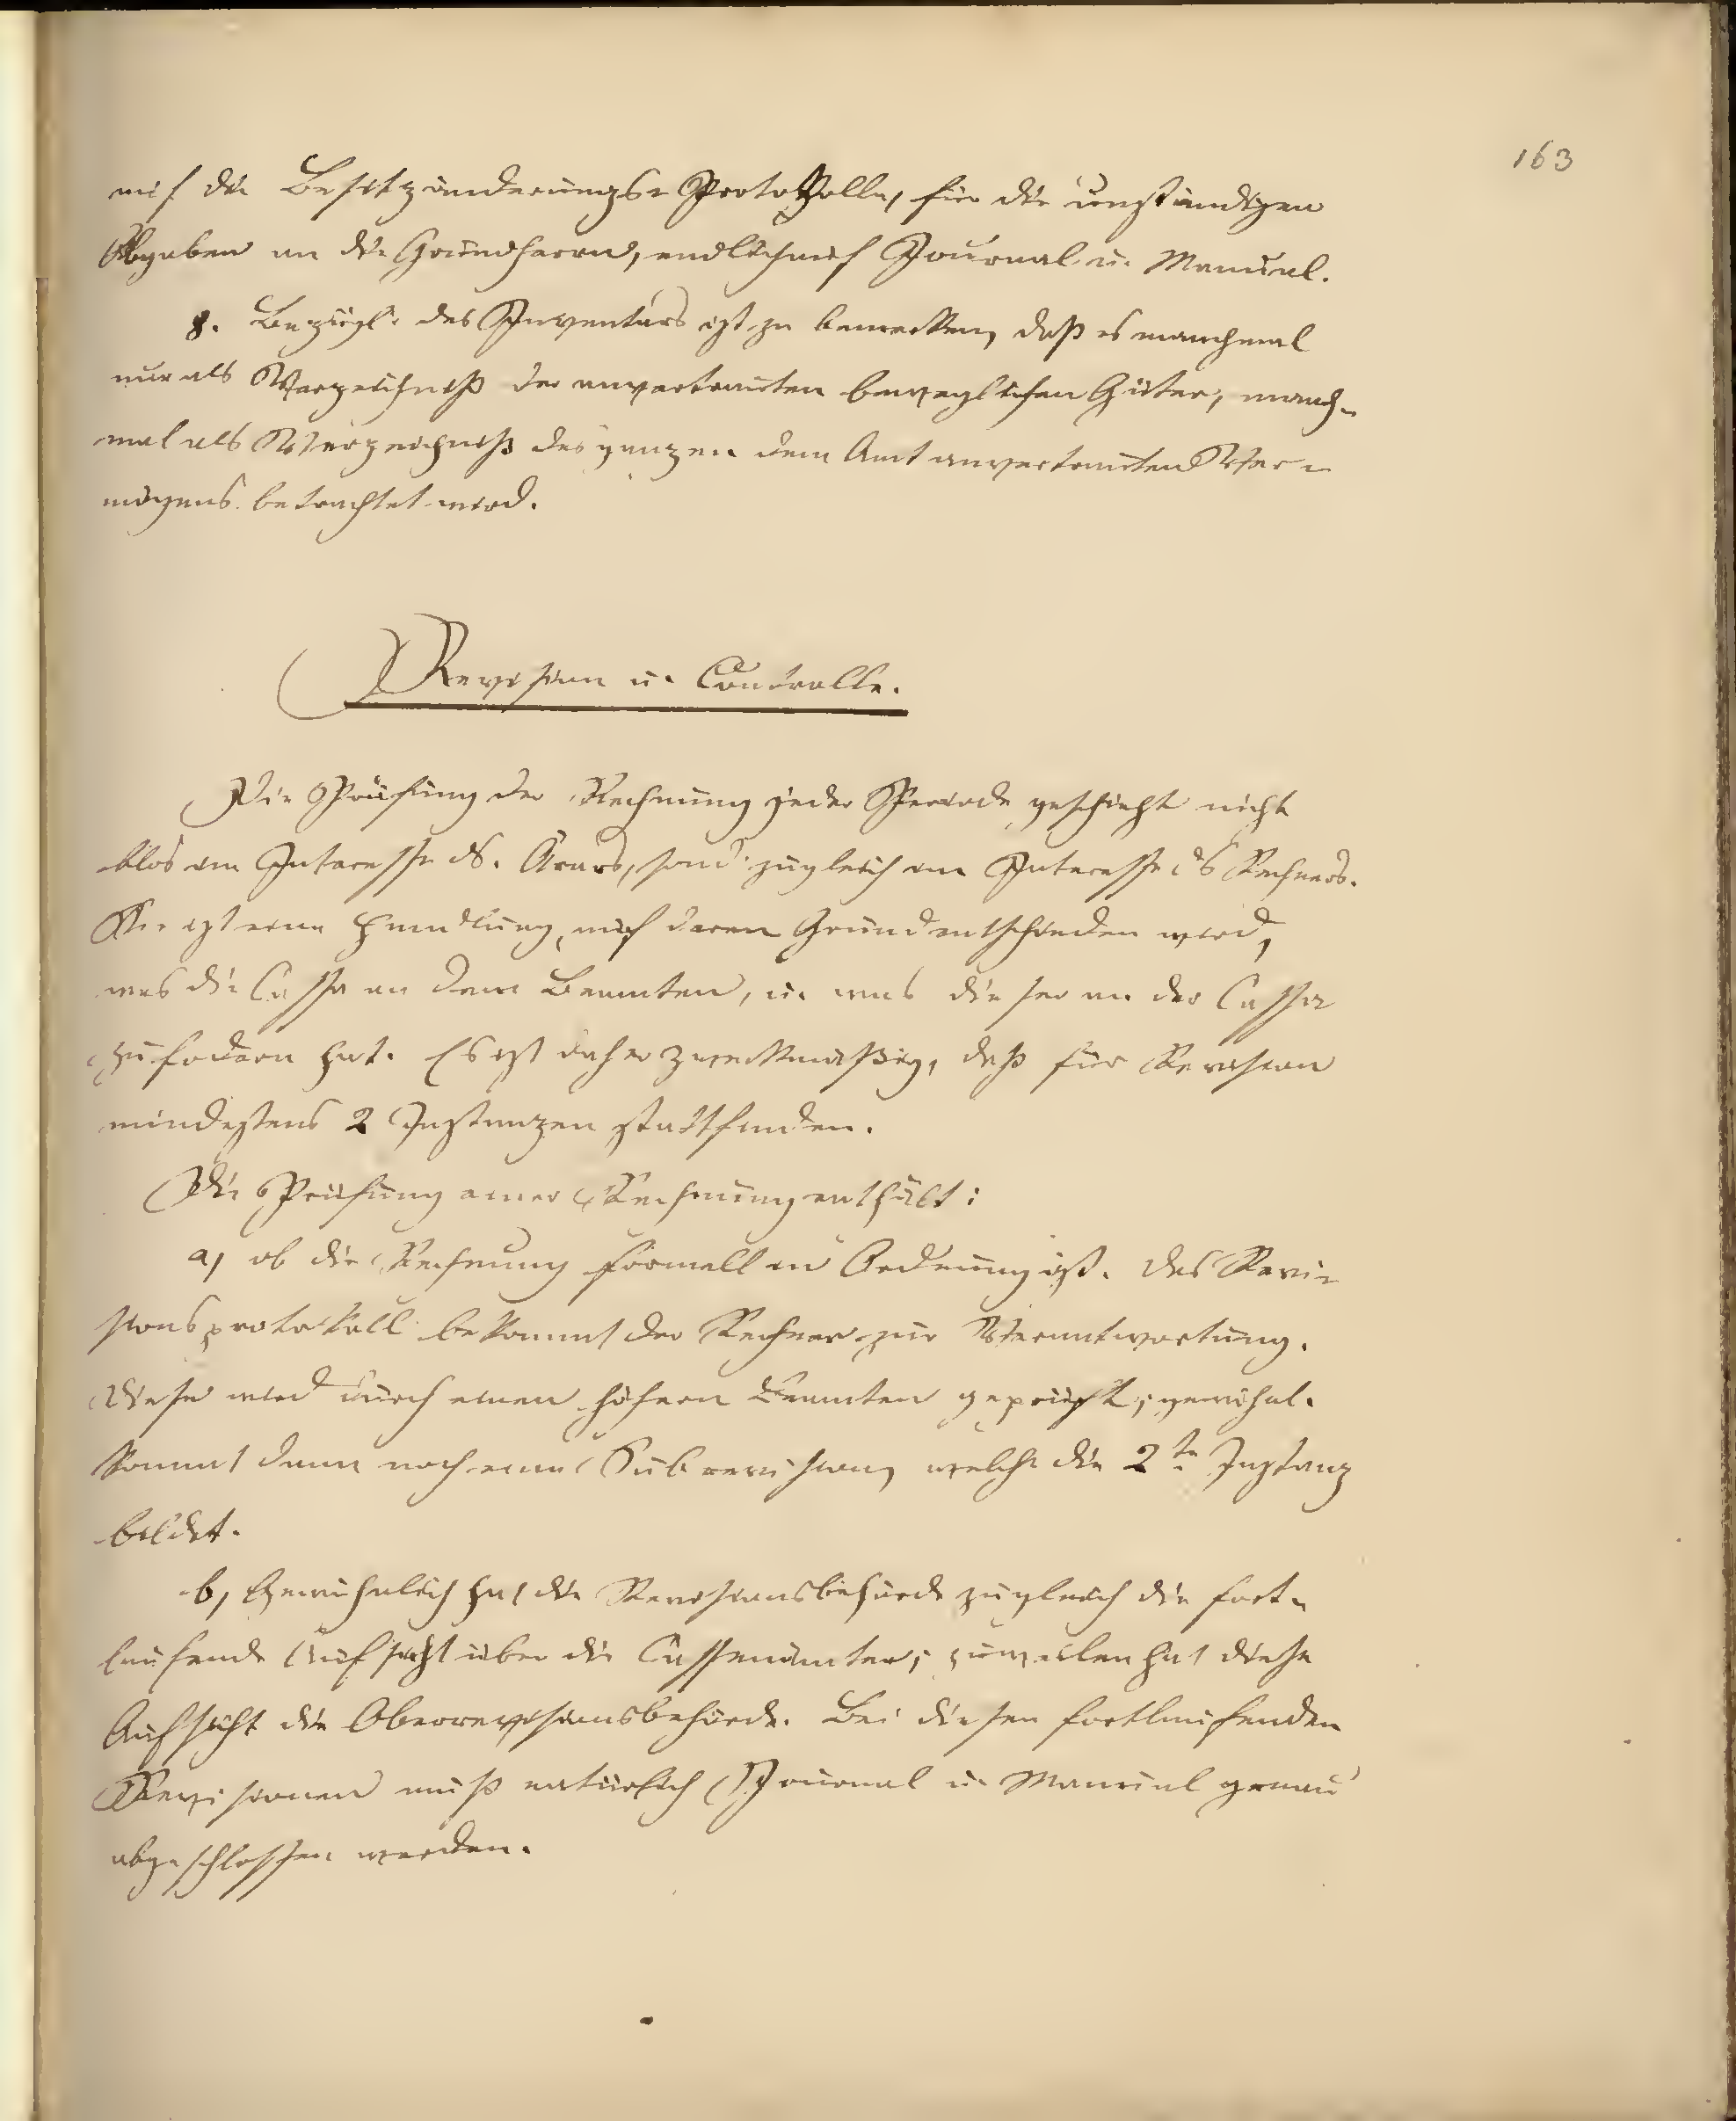 163
auf die Besitzänderungs-Protokolle, für die unständigen
Abgaben an die Grundherrn, endlich auf Journal u. Manual.
8. Bezügl. des Inventars ist zu bemerken, daß es manchmal
nur als Verzeichniß der anvertrauten beweglichen Güter, manch-
mal als Verzeichniß des ganzen dem Amt anvertrauten Ver-
mögens betrachtet wird.
Revision u. Controlle.
Die Prüfung der Rechnung jeder Periode geschieht nicht
blos im Interesse ds. Ärars, sond. zugleich im Interesse ds Rechners.
Sie ist eine Handlung, auf deren Grund entschieden wird,
was die Cassa an dem Beamten, u. was dieser an der Cassa
zu fodern hat. Es ist daher zweckmäßig, daß für Revision
mindestens 2 Instanzen stattfinden.
Die Prüfung einer Rechnung enthält:
a, ob die Rechnung formell in Ordnung ist. Das Revi-
sionsprotokoll bekommt der Rechner zur Verantwortung.
Diese wird durch einen höhern Beamten geprüft; gewöhnl.
kommt dann noch eine Subrevision, welche die 2te Instanz
bildet.
b, Gewöhnlich hat die Revisionsbehörde zugleich die fort-
laufende Aufsicht über die Cassenämter; zuweilen hat diese
Aufsicht die Oberrevisionsbehörde. Bei diesen fortlaufenden
Revisionen muß natürlich Journal u. Manual genau
abgeschlossen werden.